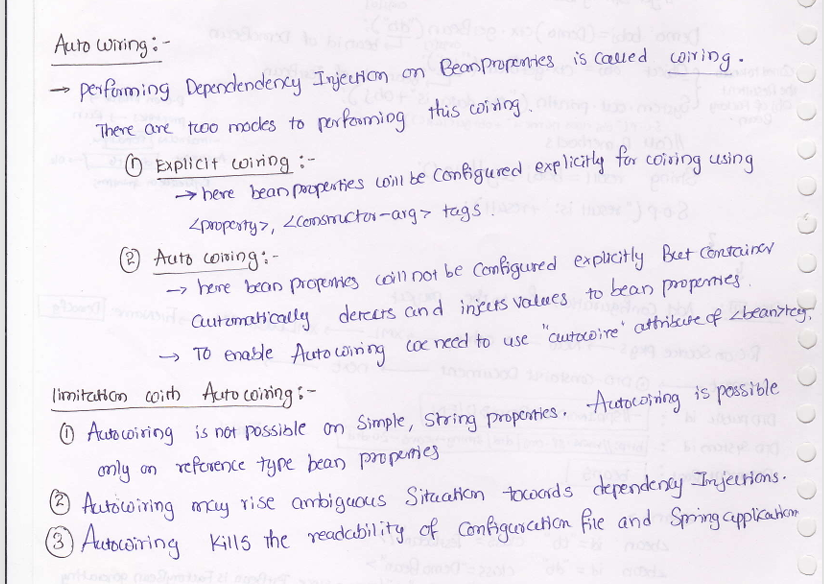 Auto wiring:-
→ performing Dependendency Injection on Beanproperties is called wiring.
There are two modes to performing this wiring.
① Explicit wiring:-
→ here bean properties will be configured explicitly for wiring using
<property>, <constructor-arg> tags.
② Auto wiring:-
→ here bean properties will not be configured explicitly But container
automatically detects and injects values to bean properties.
→ To enable Autowiring we need to use "autowire" attribute of <bean> tag.
limitation with Autowiring:-
① Autowiring is not possible on simple, string properties. Autowiring is possible
only on reference type bean properties
② Autowiring may rise ambiguous situation towards dependency Injections.
③ Autowiring kills the readability of configuration file and Spring application